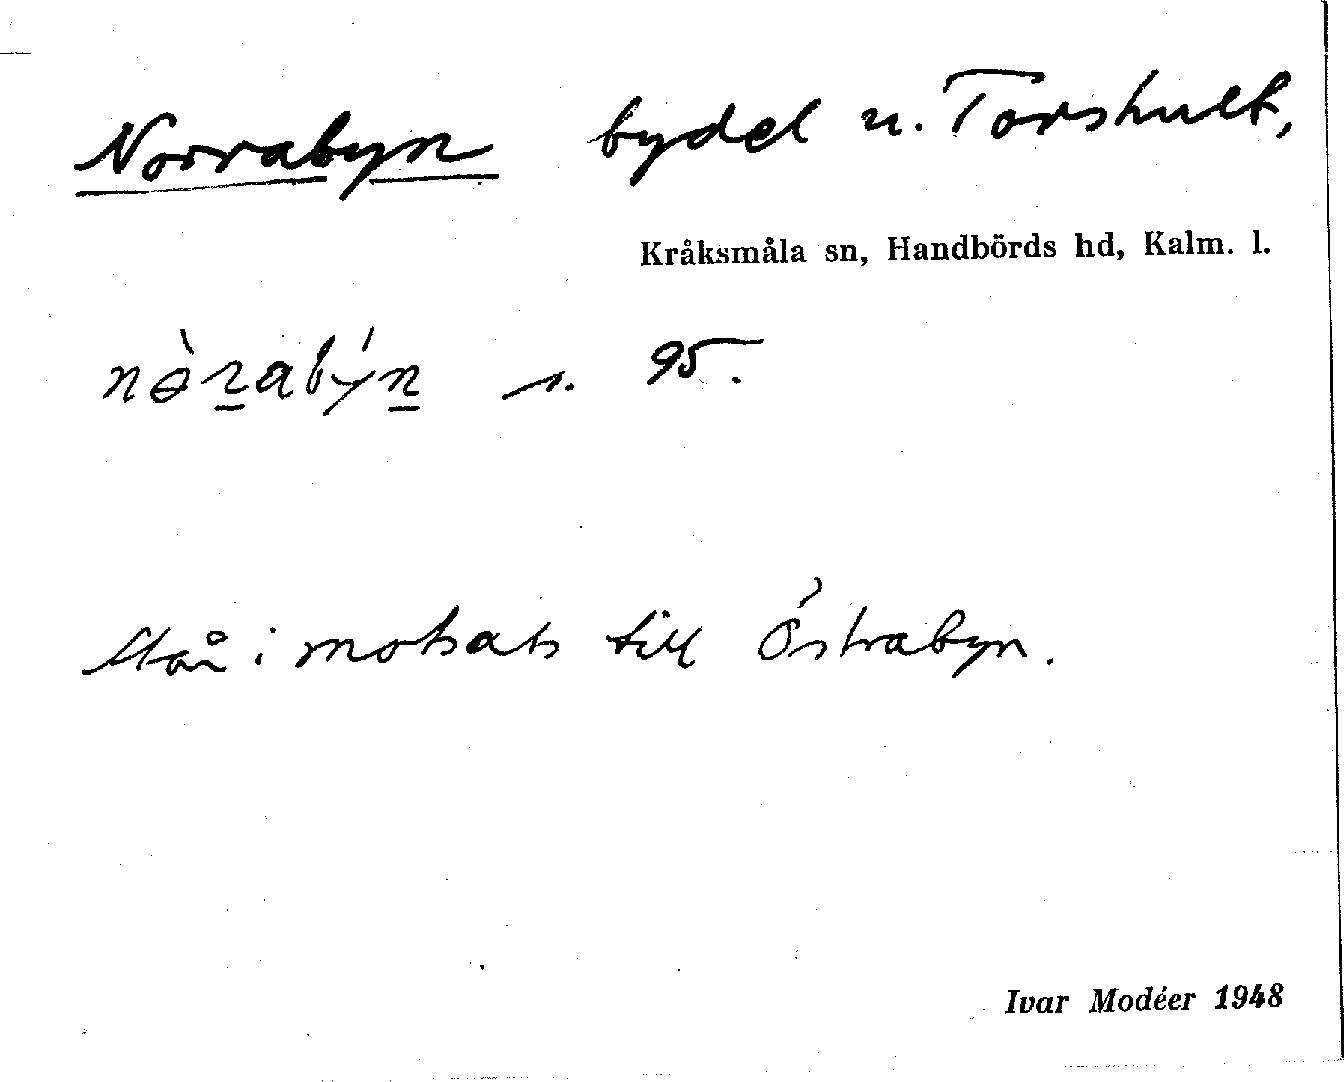 Norrabyn bydel u. Torshult,
Kråksmåla sn, Handbörds hd, Kalm. l.
nɵ̀rabýn s. 95.
Står i motsats till Östrabyn.
Ivar Modéer 1948